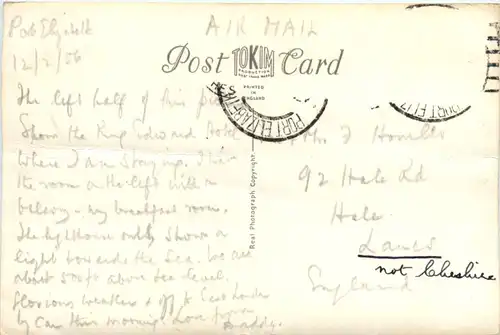 Port Elizabeth
12/2/56
AIR MAIL
Post TOKIM Card
PRODUCTION
PRINTED IN ENGLAND
Real Photograph Copyright.
PORT ELIZABETH
PORT ELIZ
The left half of this
Shows the King Edward Hotel
where I am staying. I have
the room on the left with a
balcony - my breakfast room.
The lighthouse only shows a
light towards the sea. We are
about 500ft above sea level.
Glorious weather & off to East London
by car this morning. Love from
Daddy.
Mrs J
92 Hale Rd
Hale
Lancs
not Cheshire
England